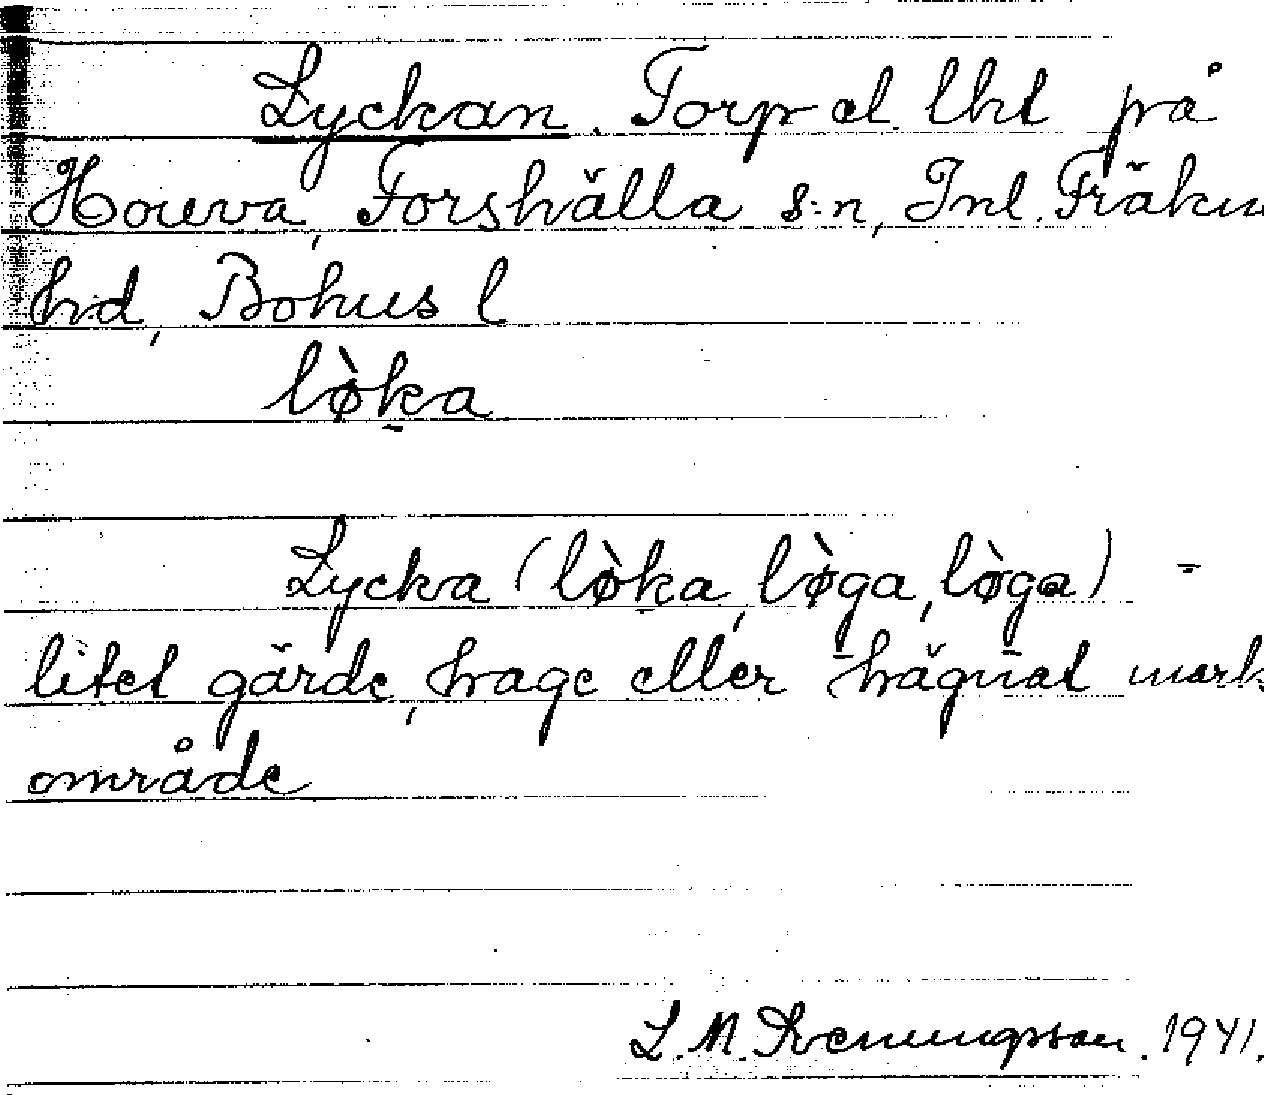 Lyckan. Torp el. lht på
Houva, Forshälla s:n, Inl. Fräkne
hd, Bohus l
lø̀ka
Lycka (lø̀ka, lø̀ga, lø̀ga) =
litet gärde, hage eller hägnat mark
område
L. M. Svenungsson. 1941.